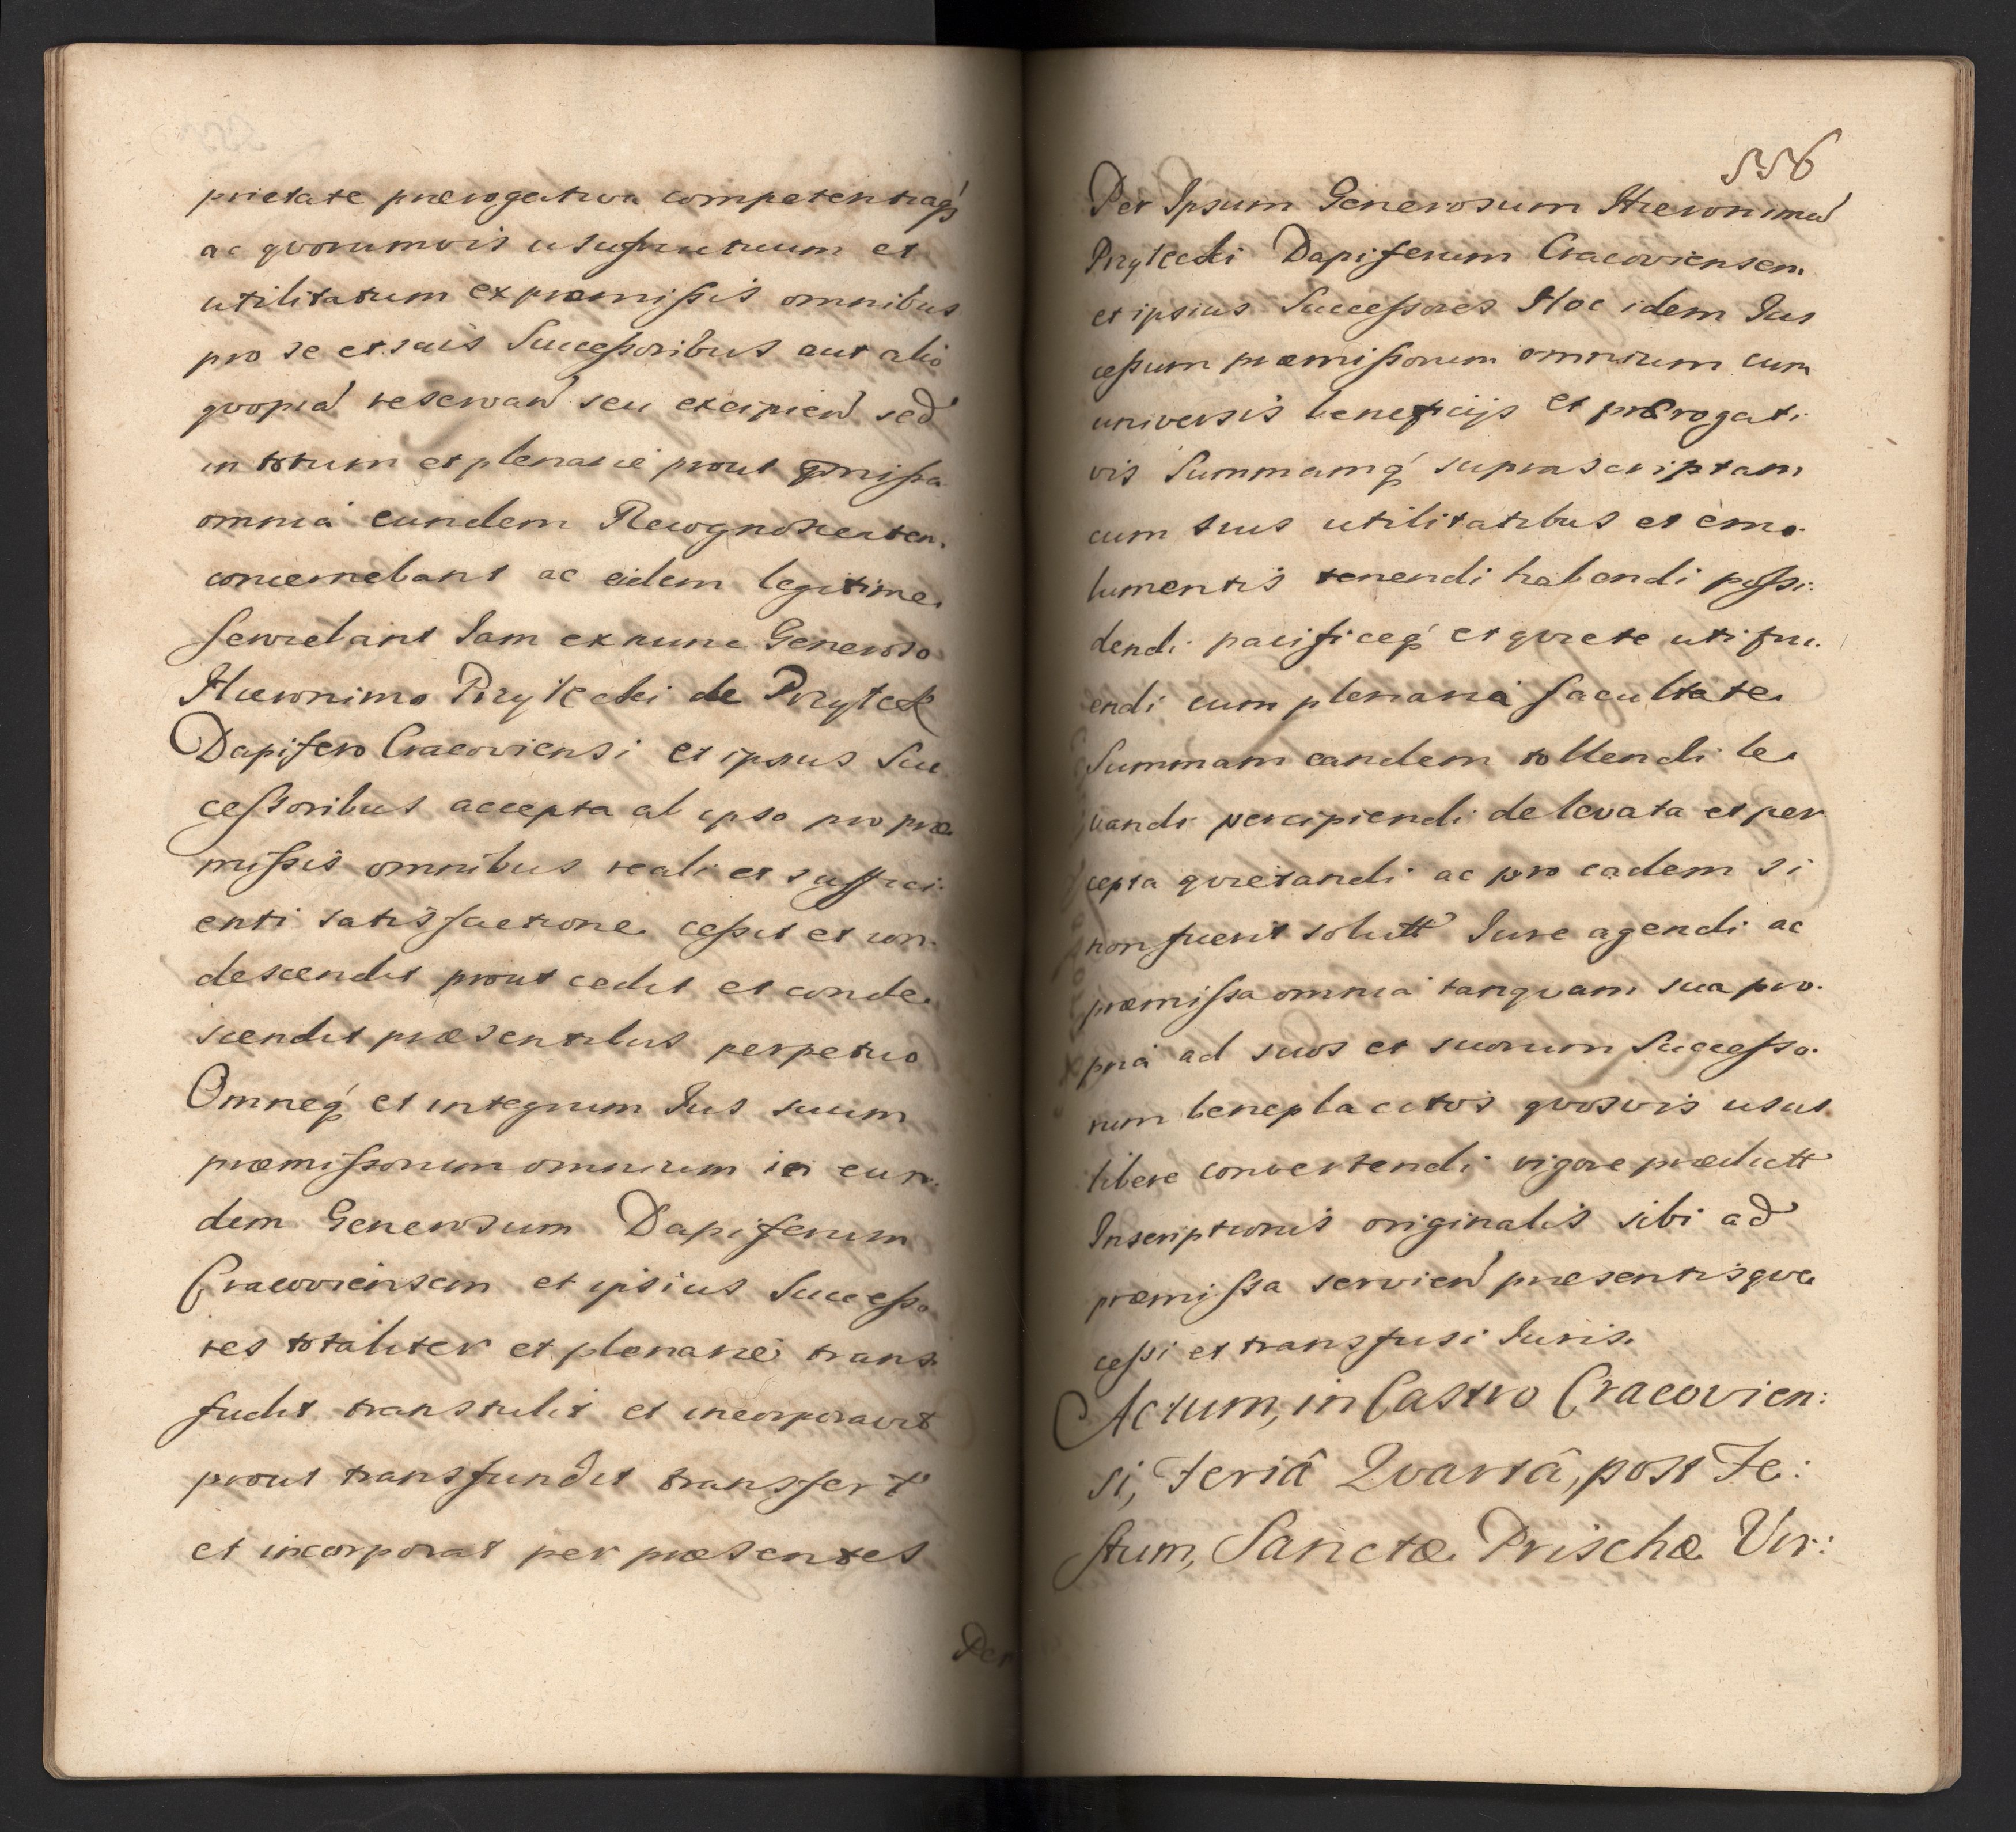 prietate prærogativa competentiaq́
ac qvorumvis usufructuum et
utilitatum ex præmißis omnibus
pro se et suis Succeßoribus aut alio
qvopiã reservan̄ seu excipien̄ sed
in totum et plenarie prout præmißa
omnia eundem Recognoscenten.
concernebant ac eidem legitime
serviebant Jam ex nunc Generoso
Hieronimo Przyłecki de Przyłęk
Dapifero Cracoviensi et ipsius Suc
ceßoribus accepta ab ipso pro præ
mißis omnibus reali et suffici-
enti satisfactione ceßit et con-
descendit prout cedit et conde
scendit præsentibus perpetuo
Omneq́ et integrum Jus suum
præmißorum omnium in eun-
dem Generosum Dapiferum
Cracoviensem et ipsius Succeßo
res totaliter et plenarie trans-
fudit transtulit et incorporavit
prout transfundit transfert
et incorporat per præsentes
Per
556
Per Ipsum Generosum Hieronimū
Przyłecki Dapiferum Cracoviensem
et ipsius Succeßores Hoc idem Jus
ceßum præmißorum omnium cum
universis beneficijs et prærogati
vis Summamq́ suprascriptam
cum suis utilitatibus et emo-
lumentis tenendi habendi poßi-
dendi pacificeq́ et qviete utifru-
endi cum plenaria facultate
Summam eandem tollendi le
vandi percipiendi de levata et per
cepta qvietandi ac pro eadem si
non fuerit solutt Jure agendi ac
præmißa omnia tanqvam sua pro-
pria ad suos et suorum Succeßo-
rum beneplacitos qvosvis usus
libere convertendi vigore prædictt
Inscriptionis originalis sibi ad
præmißa servien̄ præsentisqve
ceßi et transfusi Juris.
Actum, in Castro Cracovien:
si, Feriâ Qvartâ, post Fe:
stum, Sanctæ Prischæ Vir: